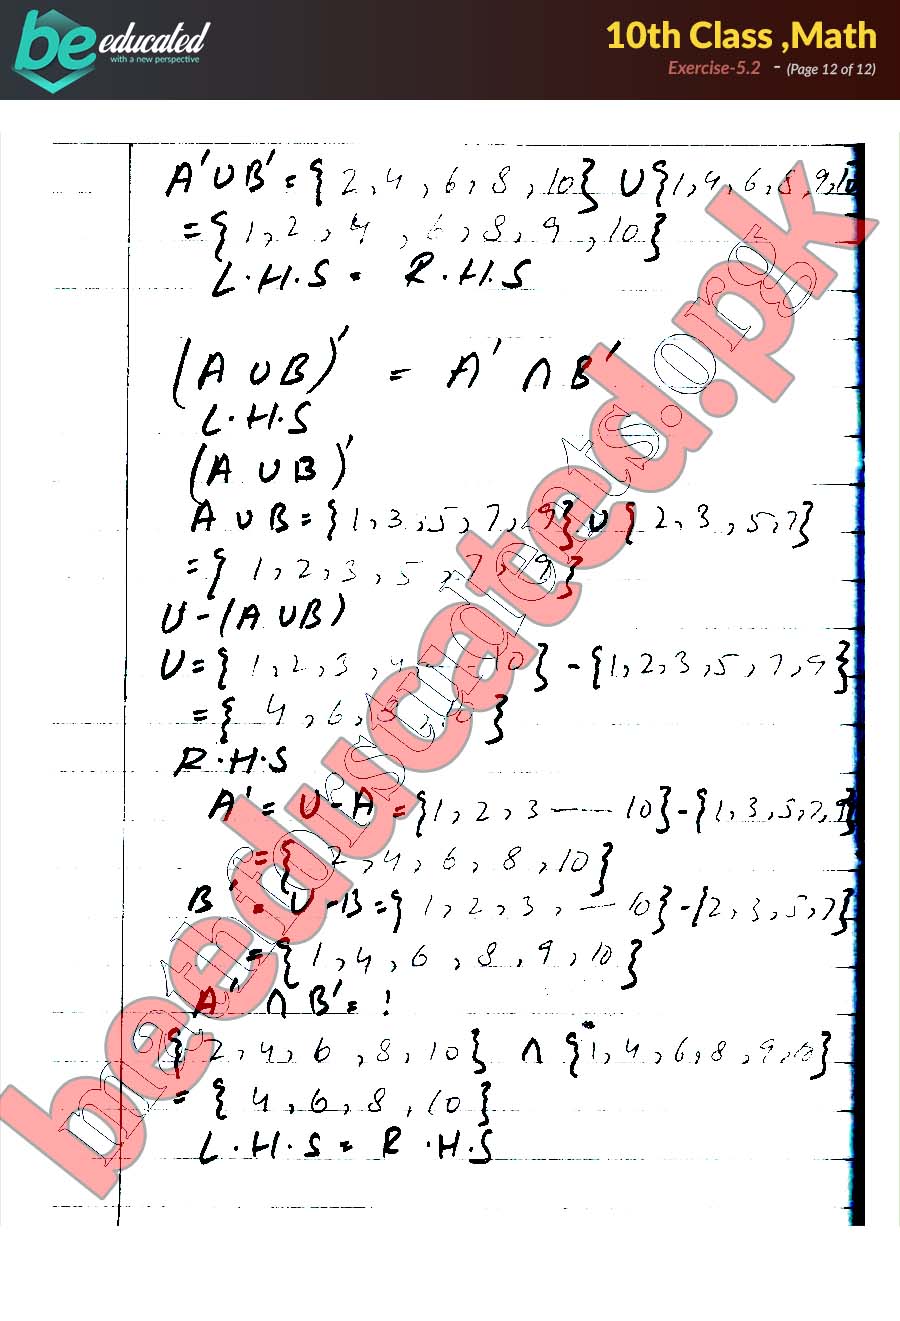 be educated
with a new perspective
10th Class ,Math
Exercise-5.2 - (Page 12 of 12)
A'∪B' = {2,4,6,8,10} ∪ {1,4,6,8,9,10
= {1,2,4,6,8,9,10}
L.H.S = R.H.S
(A∪B)' = A' ∩ B'
L.H.S
(A∪B)'
A∪B = {1,3,5,7,9} ∪ {2,3,5,7}
= {1,2,3,5,7,9}
U-(A∪B)
U = {1,2,3,4---10} - {1,2,3,5,7,9}
= {4,6,8,10}
R.H.S
A' = U-A = {1,2,3---10} - {1,3,5,7,9}
= {2,4,6,8,10}
B' = U-B = {1,2,3,---10} - {2,3,5,7}
= {1,4,6,8,9,10}
A' ∩ B' = !
{2,4,6,8,10} ∩ {1,4,6,8,9,10}
= {4,6,8,10}
L.H.S = R.H.S
beeducated.pk